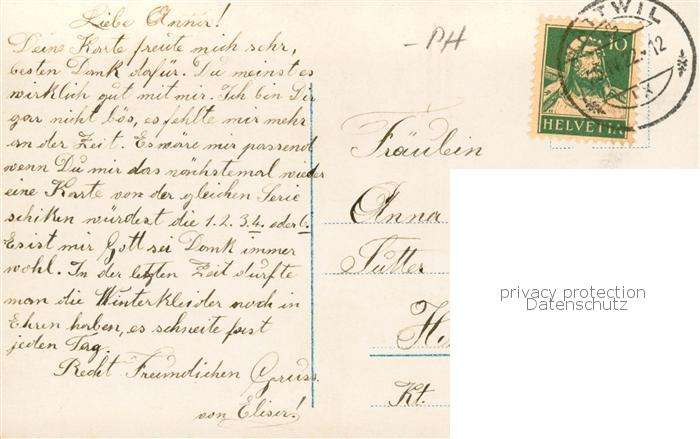 Liebe Anna!
Deine Karte freute mich sehr,
besten Dank dafür. Du meinst es
wirklich gut mit mir. Ich bin Dir
gar nicht bös, es fehlte mir mehr
an der Zeit. Es wäre mir passend
wenn Du mir das nächstemal wieder
eine Karte von der gleichen Serie
schiken würdest die 1. 2. 3. 4. oder 6.
Es ist mir Gott sei Dank immer
wohl. In der letzten Zeit durfte
man die Winterkleider noch in
Ehren haben, es schneite fast
jeden Tag.
Recht Freundlichen Gruss
von Eliser!
-PH
TWIL
10
HELVETIA
Fräulein
Anna
Sutter
Kt.
privacy protection
Datenschutz